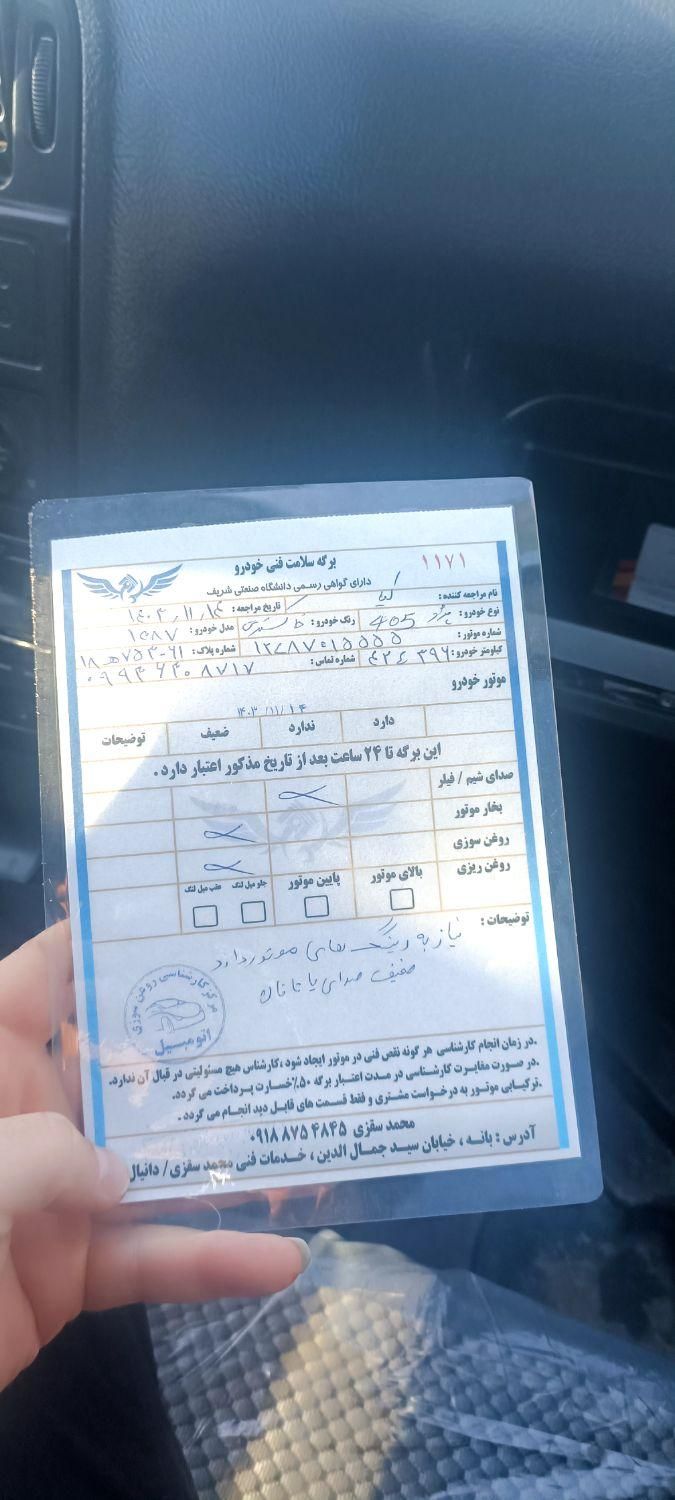 برگه سلامت فنی خودرو
۱۱۷۱
دارای گواهی رسمی دانشگاه صنعتی شریف
نام مراجعه کننده : کیا
تاریخ مراجعه : ۱۴۰۳/۱۱/۱۴
نوع خودرو : پژو 405 رنگ خودرو : مدل خودرو : ۱۳۸۷
شماره موتور : شماره پلاک :
کیلومتر خودرو : شماره تماس :
موتور خودرو
۱۴۰۳/۱۱/۱۴
دارد ندارد ضعیف توضیحات
این برگه تا ۲۴ ساعت بعد از تاریخ مذکور اعتبار دارد .
صدای شیم / فیلر
بخار موتور
روغن سوزی
روغن ریزی
بالای موتور پایین موتور جلو میل لنگ عقب میل لنگ
توضیحات : نیاز به رینگ های موتور دارد
خفیف صدای یاتاقان
مرکز کارشناسی روغن سوزی
اتومبیل
.در زمان انجام کارشناسی هر گونه نقص فنی در موتور ایجاد شود ،کارشناس هیچ مسئولیتی در قبال آن ندارد.
.در صورت مغایرت کارشناسی در مدت اعتبار برگه ۵۰٪خسارت پرداخت می گردد.
.ترکیابی موتور به درخواست مشتری و فقط قسمت های قابل دید انجام می گردد .
محمد سقزی ۰۹۱۸۸۷۵۴۸۴۵
آدرس : بانه ، خیابان سید جمال الدین ، خدمات فنی محمد سقزی/ دانیال